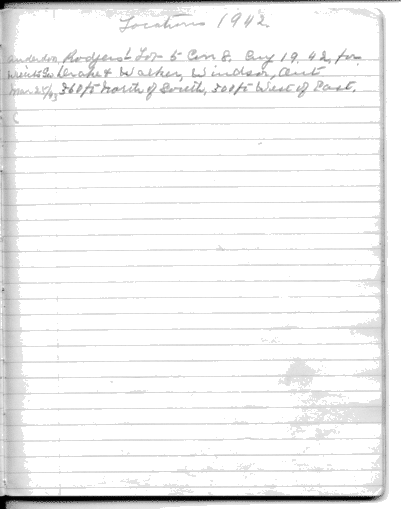 Locations 1942
Anderson, Rodgers Lot 5 Con 8, Aug 19, 42, for
Drake & Walker, Windsor, Ont
Mar 25/43 360ft North of South, 300ft West of East.